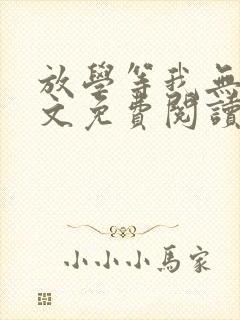 放學等我無
文免費閱讀
小小小馬家